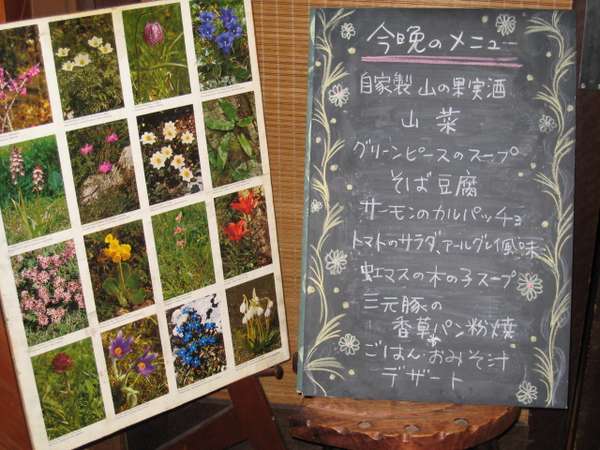 今晩のメニュー
自家製 山の果実酒
山菜
グリーンピースのスープ
そば豆腐
サーモンのカルパッチョ
トマトのサラダ、アールグレイ風味
虹マスの木の子スープ
三元豚の
香草パン粉焼
ごはん おみそ汁
デザート